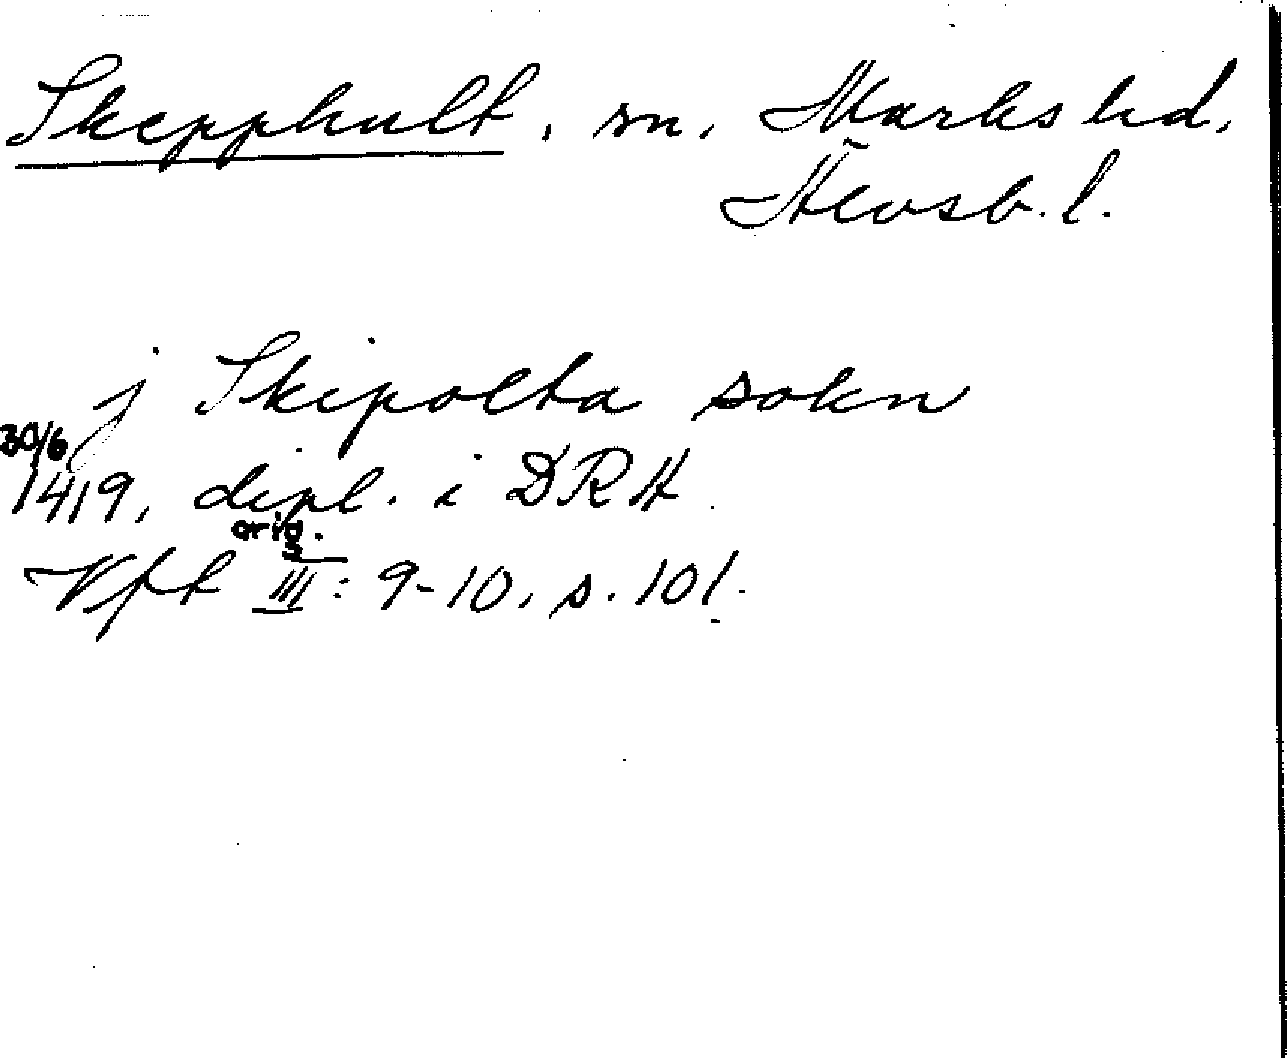 Skepphult, sn, Marks hd,
Älvsb. l.
j Skipolta sokn
30/6
1419, dipl. i DRA
orig.
Vft III: 9-10, s. 101.